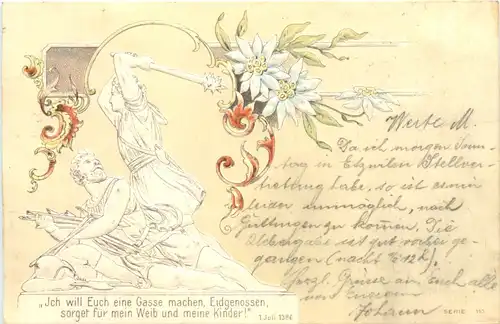 Werte M.
Da ich morgen Sonn-
tag in Etzwilen Stellver-
tretung habe, so ist es mir
leider unmöglich, nach
zu kommen. Die
ist gut vorbei ge-
gangen (nachts 12 h.)
Herzl. Grüsse an Euch alle
von Eurem
Johann
„Ich will Euch eine Gasse machen, Eidgenossen,
sorget für mein Weib und meine Kinder!“
1. Juli
SERIE